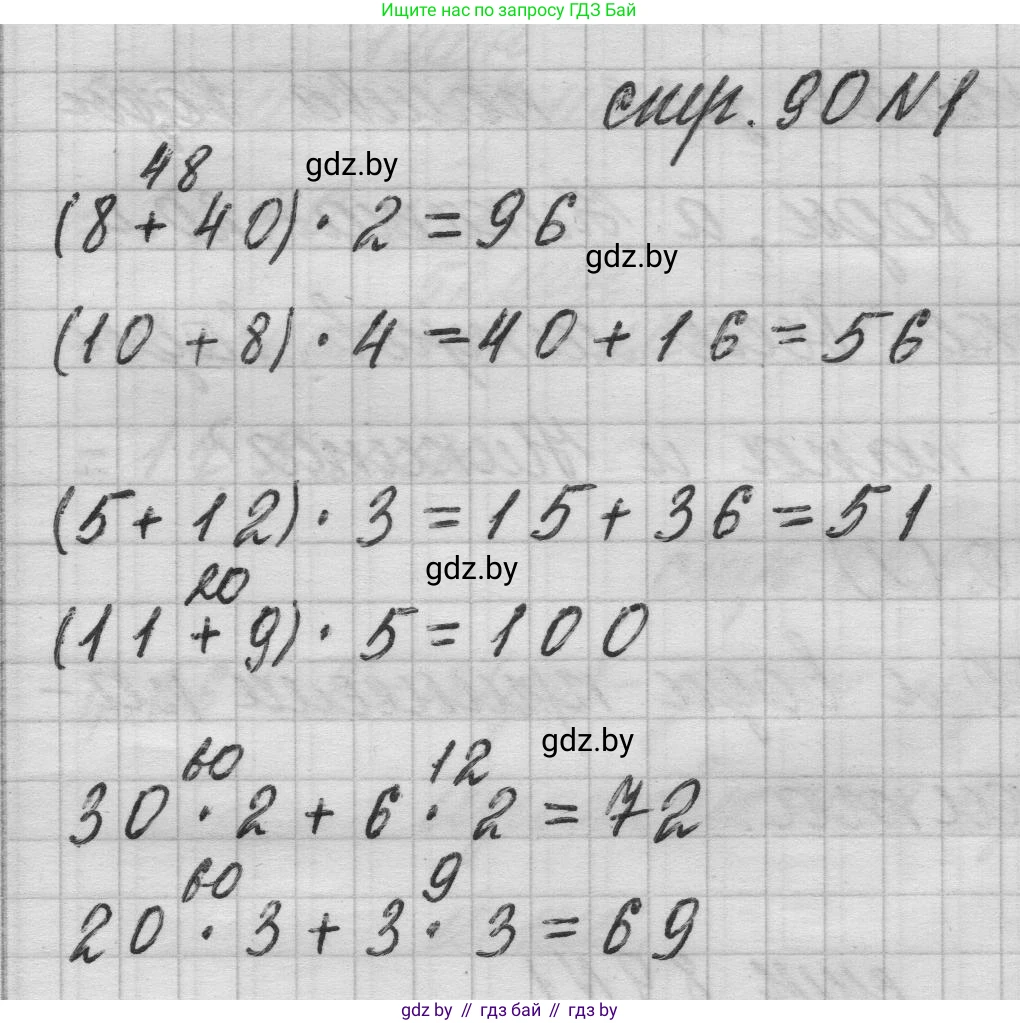 Ищите нас по запросу ГДЗ Бай
стр. 90 №1
48
gdz.by
(8 + 40) · 2 = 96
gdz.by
(10 + 8) · 4 = 40 + 16 = 56
(5 + 12) · 3 = 15 + 36 = 51
gdz.by
20
(11 + 9) · 5 = 100
gdz.by
60 12
30 · 2 + 6 · 2 = 72
60 9
20 · 3 + 3 · 3 = 69
gdz by // гдз бай // гдз by